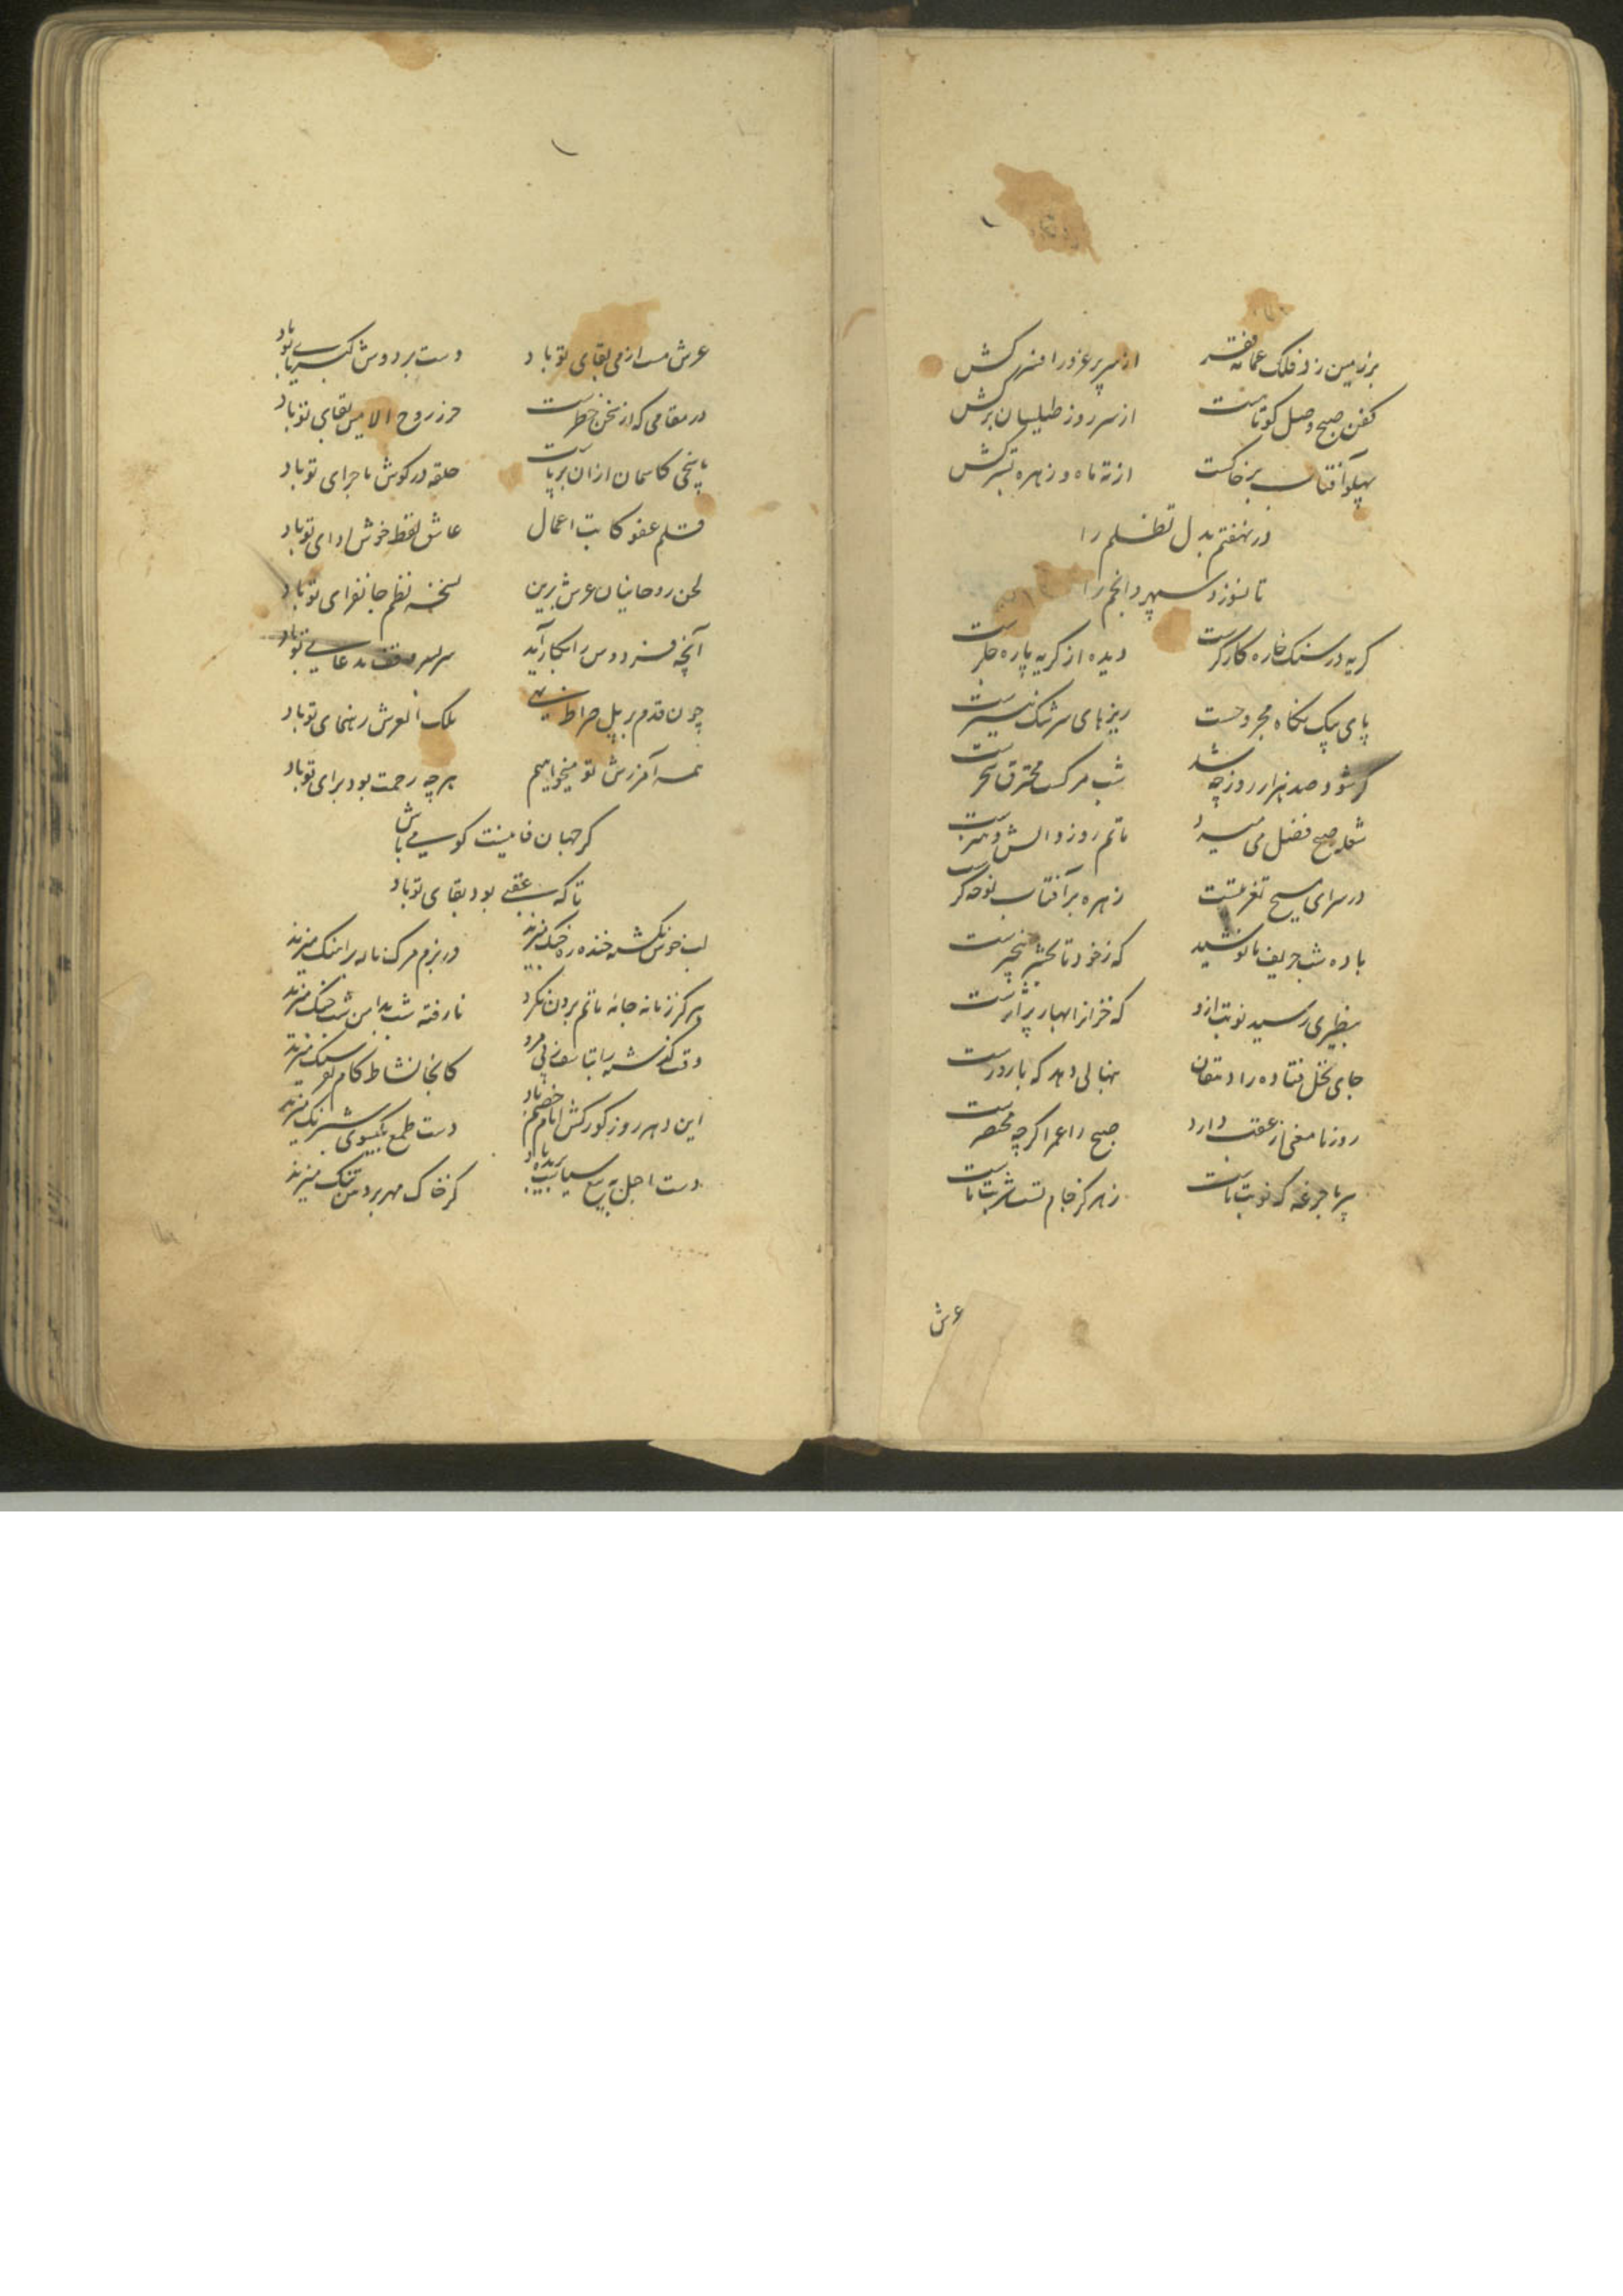 بر زمین زد فلک عمامه فقر
از سر پر غرور افسر کش
کفن صبح وصل کوتاهست
از سر روز طیلسان برکش
پهلو آفتاب بر خاکست
از ته ماه و زهره بستر کش
در نهفتم بدل تظلم را
تا نسوزد سپهر و انجم را
کریه در سنک خاره کارکرست
دیده از کریه پاره جکرست
پای پیک نکاه مجروحست
ریزهای سرشک نیشترست
کر شود صد هزار روز چه شد
شب مرکت محترق سحرست
شعله صبح فضل می میرد
ماتم روز دانش و هنرست
در سرای مسیح تغزیتست
زهره بر آفتاب نوحه کرست
باده شب حریف ما نوشید
که ز خود تا بحشر بیخبرست
بنظیری رسید نوبت ازو
که خزانرا بهار بر اثرست
جای نخل فتاده را دهقان
بنهالی دهد که بارورست
روز ما مغنی از عقب دارد
صبح را عمر اکرچه مختصرست
پر ما جرعه که نوبت ماست
زهر کز جام تست شربت ماست
عرش
عرش مست از می بقای تو باد
دست بر دوش کبریای تو باد
در مقامی که از سخن خطرست
حرز روح الامین بقای تو باد
پاسخی کاسمان ازان برپاست
حلقه در کوش ماجرای تو باد
قلم عفو کاتب اعمال
عاشق لفظ خوش ادای تو باد
لحن روحانیان عرش برین
نسخه نظم جانفزای تو باد
آنچه فردوس را بکار آید
سر بسر وقف مدعای تو باد
چون قدم بر پل صراط نهی
ملک العرش رهنمای تو باد
همه آمرزش تو میخواهیم
هر چه رحمت بود برای تو باد
کر جهان فانیست کو می باش
تا که عقبی بود بقای تو باد
لب خون نکشته خنده ره خنک میزند
در بزم مرک ناله براهنک میزند
هرکز زمانه جامه ماتم برون نکرد
نارفته شب بدامن شب چنک میزند
وقت کذشته را بتاسف ز پی مرو
کانجا نشاط کام تو بر سنک میزند
این دهر روز کورکش ایام خصم باد
دست طمع بکیسوی شبرنک میزند
دست اجل به تیغ سیاست بریده باد
کز خاک مهر بر دهن تنک میزند